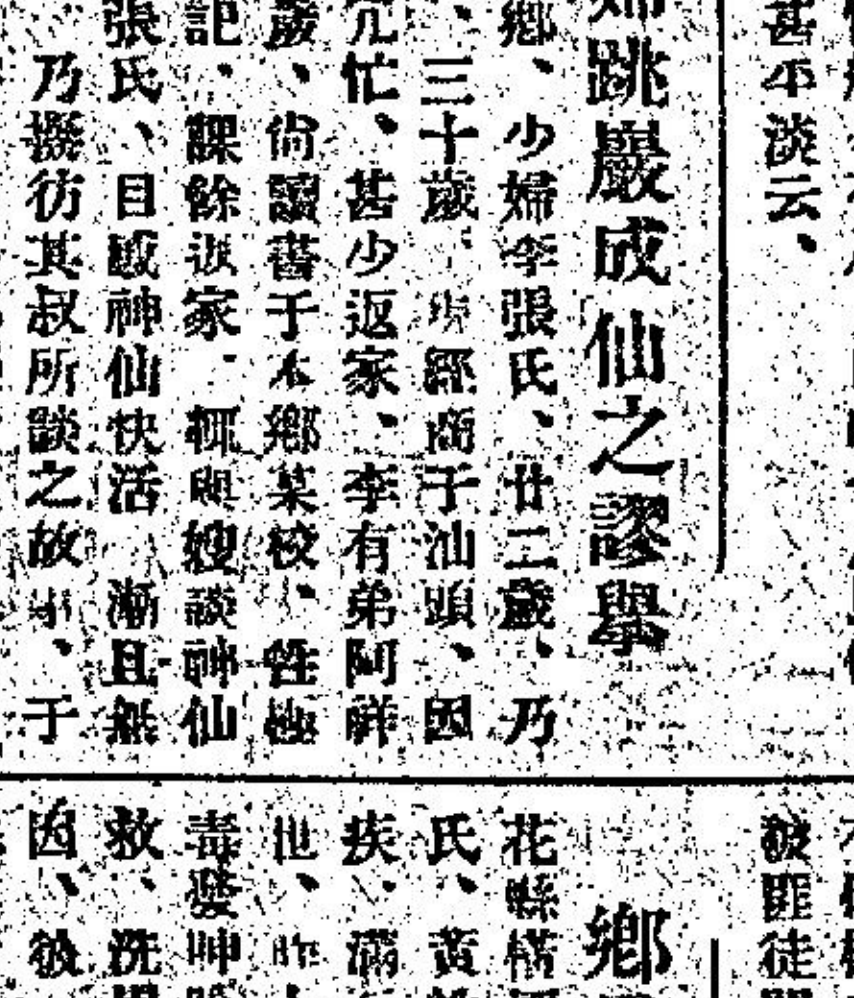 甚平淡云、
跳巖成仙之謬舉
鄉、少婦李張氏、廿二歲、乃
、三十歲、經商于汕頭、因
忙、甚少返家、李有弟阿祥
歲、尙讀書于本鄉某校、性極
記、課餘返家、輒與嫂談神仙
張氏、目感神仙快活 漸且無
乃摸彷其叔所談之故事、于
被匪徒
鄉
花縣橫
氏、黃
疾、滿
世、昨
毒發呻
救、洗
因、後